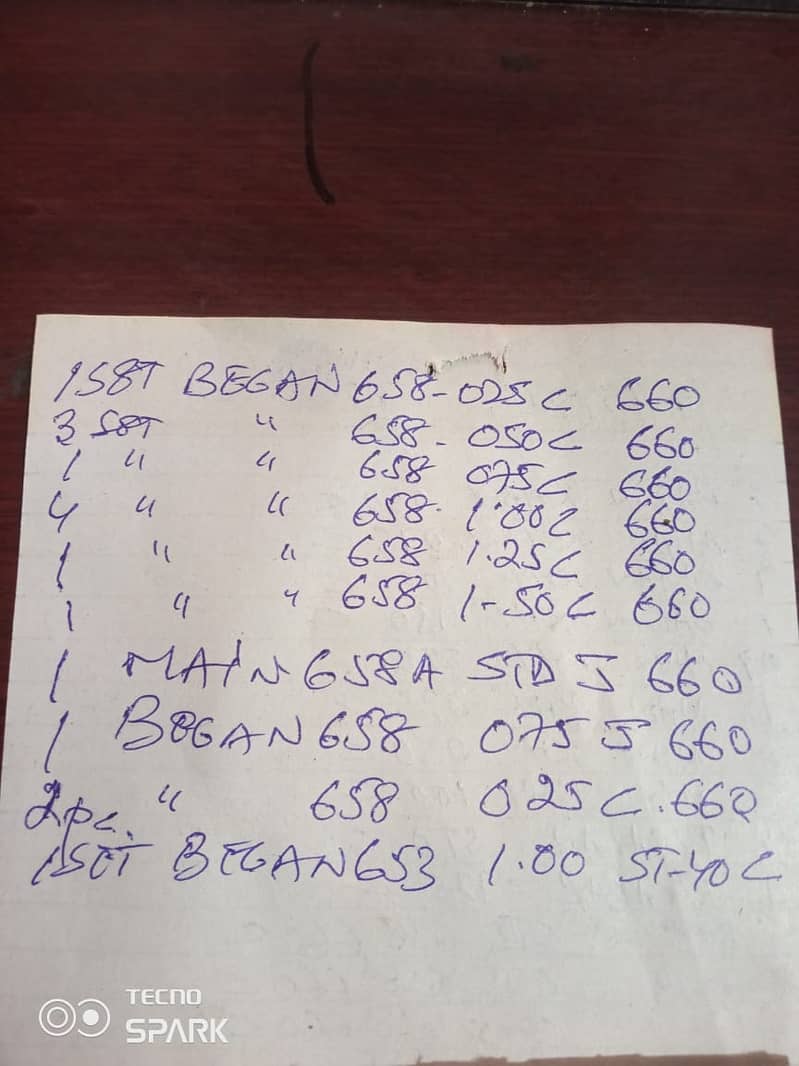 1 SET BEGAN 658-025 C 660
3 SET " 658-050 C 660
1 " " 658 075 C 660
4 " " 658- 1.00 C 660
1 " " 658 1.25 C 660
1 " " 658 1-50 C 660
1 MAIN 658A STD J 660
1 BEGAN 658 075 J 660
2pc. " 658 025 C. 660
1 SET BEGAN 653 1.00 ST-40 C
TECNO
SPARK